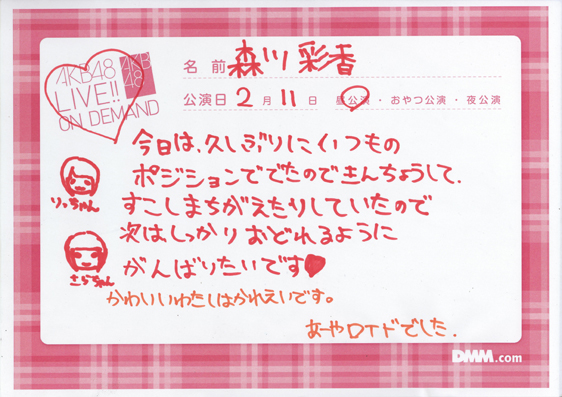 AKB48
LIVE!!
ON DEMAND
AKB
48
名前 森川彩香
公演日 2月11日 昼公演・おやつ公演・夜公演
今日は、久しぶりにいつもの
ポジションででたのできんちょうして、
すこしまちがえたりしていたので
次はしっかりおどれるように
がんばりたいです
りっちゃん
さらちゃん
かわいいわたしはかれえいです。
あーやロイドでした.
DMM.com